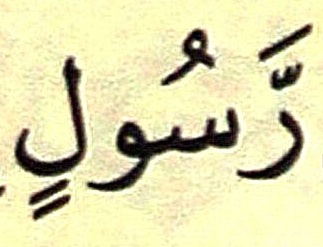 رَّسُولٍ